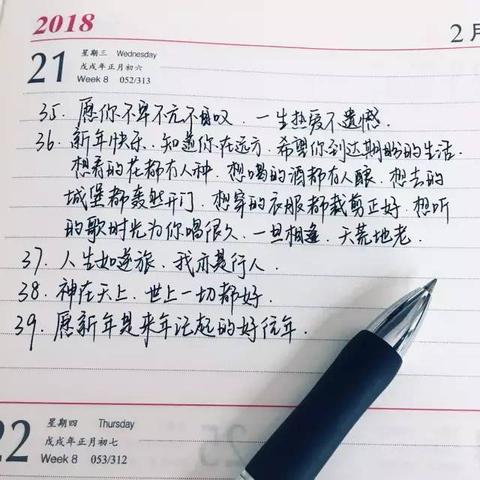 2018
2月
21
星期三 Wednesday
戊戌年正月初六
Week 8 052/313
35. 愿你不卑不亢不自叹. 一生热爱不遗憾.
36. 新年快乐. 知道你在远方. 希望你到达期盼的生活.
想看的花都有人种. 想喝的酒都有人酿. 想去的
城堡都轰然开门. 想穿的衣服都裁剪正好. 想听
的歌时光为你唱很久. 一旦相逢. 天荒地老.
37. 人生如逆旅. 我亦是行人.
38. 神在天上. 世上一切都好.
39. 愿新年是来年泛起的好往年.
22
星期四 Thursday
戊戌年正月初七
Week 8 053/312